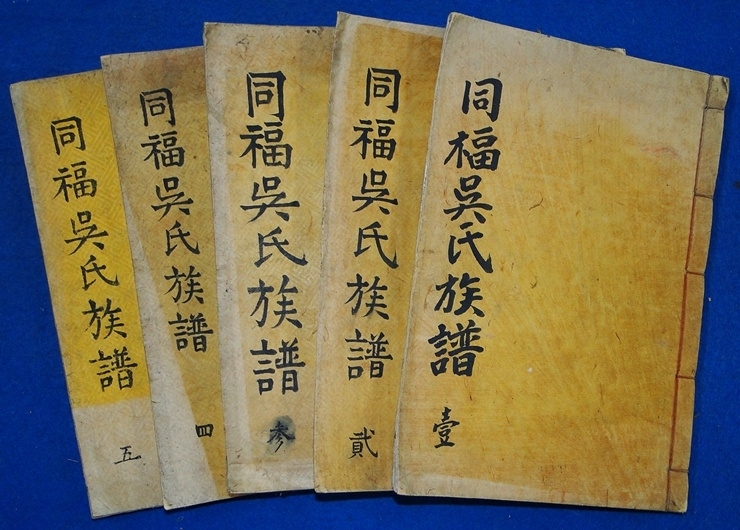 同福吳氏族譜
壹
同福吳氏族譜
貳
同福吳氏族譜
参
同福吳氏族譜
四
同福吳氏族譜
五